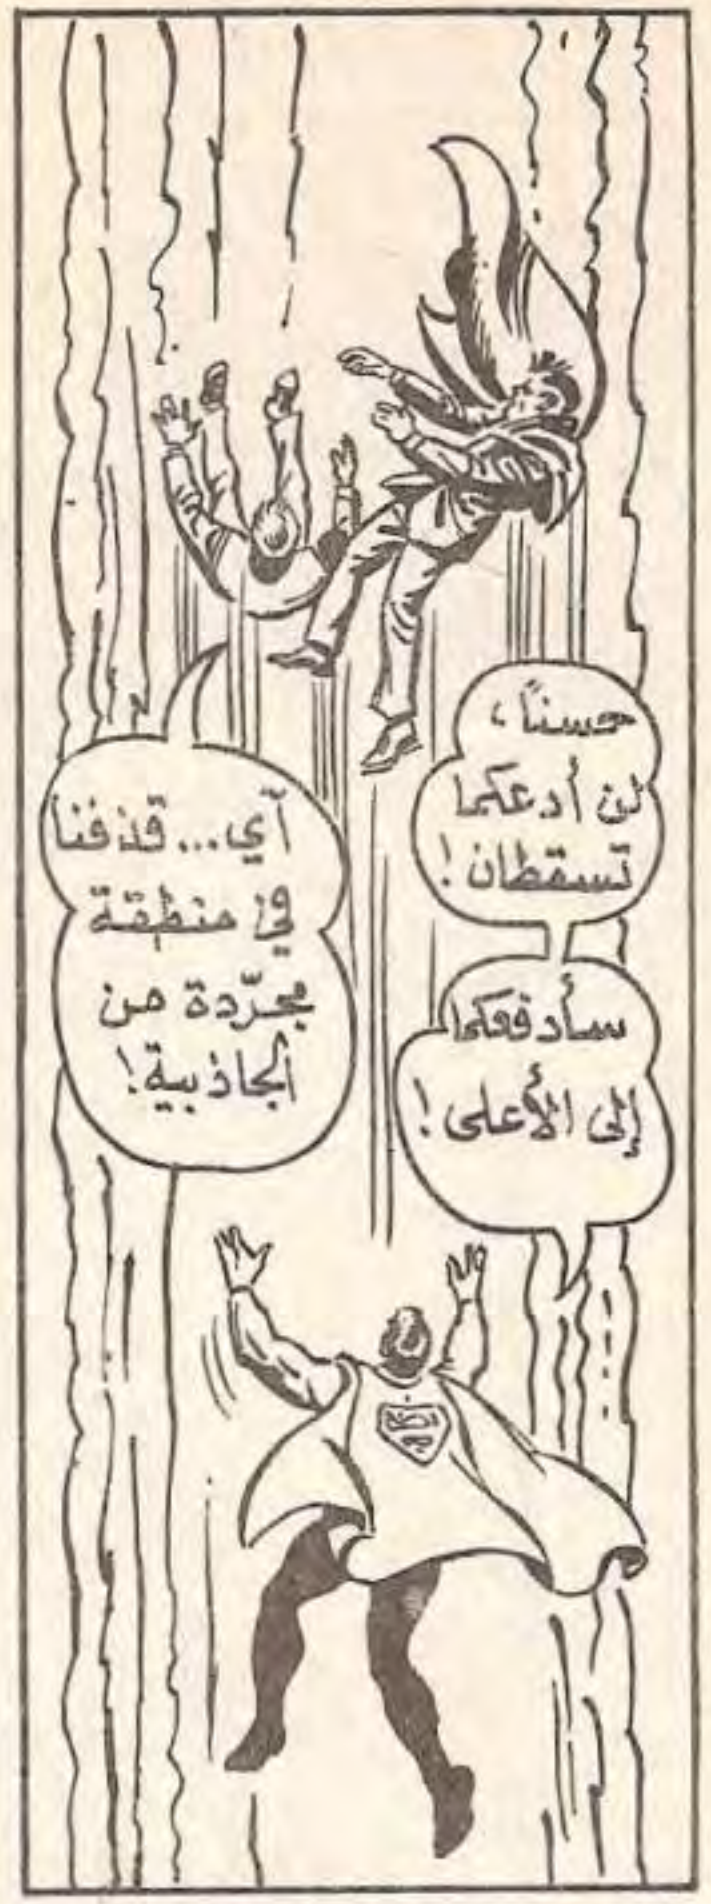 حسناً،
لن أدعكما
تسقطان!
سأدفعكما
إلى الأعلى!
آي... قذفنا
في منطقة
مجرّدة من
الجاذبية!